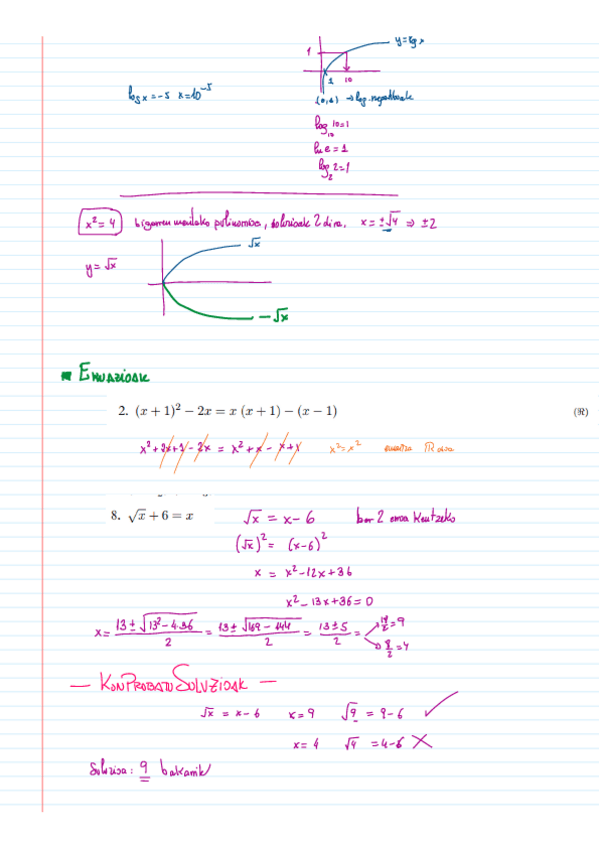 y=lg x
1
1 10
log x = -5 x=10^-5
(0,1) → log. negatiboak
log_10 10=1
ln e = 1
log_2 2=1
x² = 4 bigarren mailako polinomioa, soluzioak 2 dira. x = ±√4 ⇒ ±2
√x
y = √x
-√x
EKUAZIOAK
2. (x + 1)² − 2x = x (x + 1) − (x − 1) (ℝ)
x² + 2x + 1 - 2x = x² + x - x + 1 x² = x² ℝ dira
8. √x + 6 = x √x = x - 6 ber 2 erroa kentzeko
(√x)² = (x-6)²
x = x² - 12x + 36
x² - 13x + 36 = 0
x = (13 ± √(13² - 4·36))/2 = (13 ± √(169 - 144))/2 = (13 ± 5)/2 = 18/2 = 9
8/2 = 4
— KONPROBATU SOLUZIOAK —
√x = x - 6 x = 9 √9 = 9 - 6 ✓
x = 4 √4 = 4 - 6 ✗
Soluzioa: 9 bakarrik